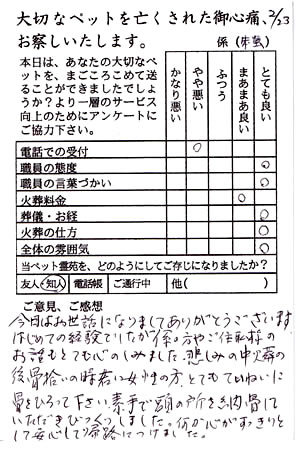 大切なペットを亡くされた御心痛、2/23
お察しいたします。 係
本日は、あなたの大切なペットを、まごころこめて送ることができましたでしょうか?より一層のサービス向上のためにアンケートにご協力下さい。
かなり悪い
やや悪い
ふつう
まあまあ良い
とても良い
電話での受付 ○
職員の態度 ○
職員の言葉づかい ○
火葬料金 ○
葬儀・お経 ○
火葬の仕方 ○
全体の雰囲気 ○
当ペット霊苑を、どのようにしてご存じになりましたか?
友人・知人 電話帳 ご通行中 他( )
ご意見、ご感想
今日はお世話になりましてありがとうございます
はじめての経験でしたが係の方やご住職様の
お話もとても心のしみました。悲しみの中火葬の
後骨拾いの時若い女性の方、とてもていねいに
骨をひろって下さい素手で頭の所を納骨して
いただきびっくりしました。何か心がすっきりと
して安心して帰路につけました。